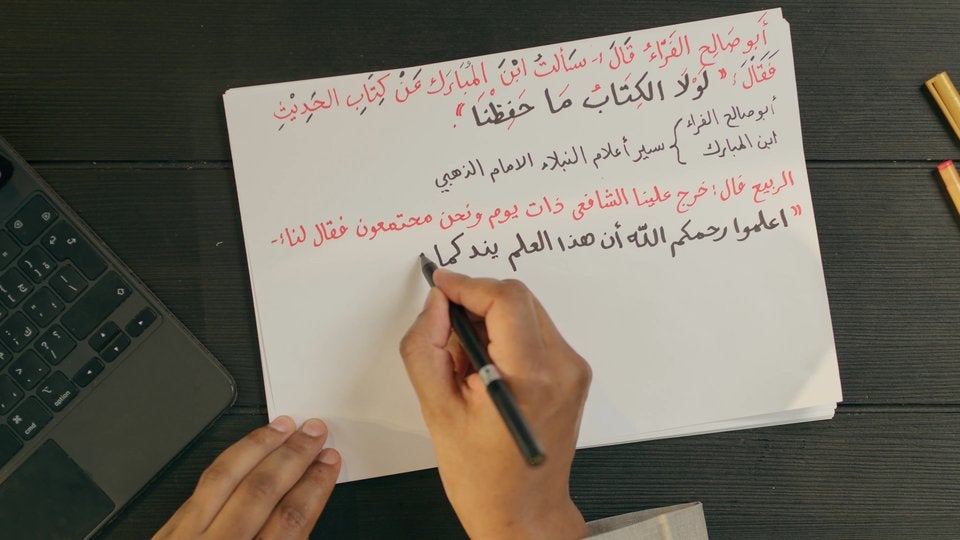 أَبو صَالِحِ الفَرَّاءُ قَالَ :- سَأَلتُ ابْنَ المُبَارَك عَنْ كِتَابِ الحَدِيْثِ
فَقَالَ : « لَوْلَا الكِتَابُ مَا حَفِظْنَا ».
أبو صالح الفراء
ابن المبارك } سير أعلام النبلاء الامام الذهبي
الربيع قال : خرج علينا الشافعي ذات يوم ونحن مجتمعون فقال لنا :-
« اعلموا رحمكم الله أن هذا العلم يند كما
option
cmd